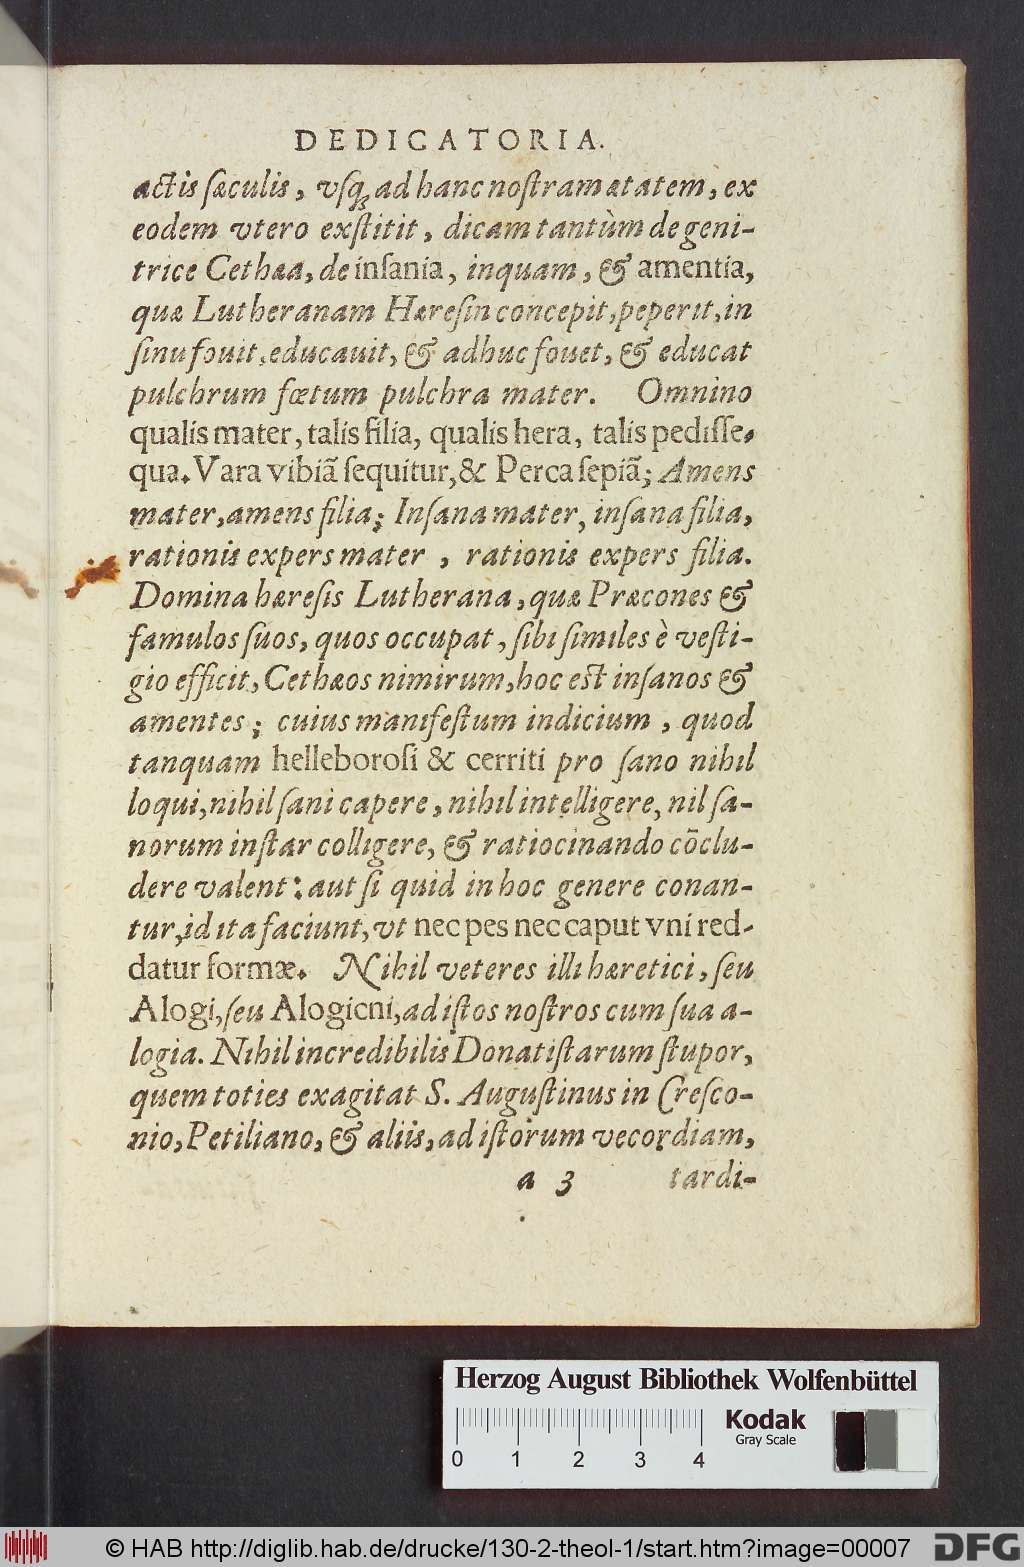 DEDICATORIA.
actis sæculis, vsq́; ad hanc nostram ætatem, ex
eodem vtero exstitit, dicam tantùm de geni-
trice Cethæa, de insania, inquam, & amentia,
quæ Lutheranam Hæresin concepit, peperit, in
sinu fouit, educauit, & adhuc fouet, & educat
pulchrum fœtum pulchra mater. Omnino
qualis mater, talis filia, qualis hera, talis pedisse-
qua. Vara vibiã sequitur, & Perca sepiã; Amens
mater, amens filia; Insana mater, insana filia,
rationis expers mater, rationis expers filia.
Domina hæresis Lutherana, quæ Præcones &
famulos suos, quos occupat, sibi similes è vesti-
gio efficit, Cethæos nimirum, hoc est insanos &
amentes; cuius manifestum indicium, quod
tanquam helleborosi & cerriti pro sano nihil
loqui, nihil sani capere, nihil intelligere, nil sa-
norum instar colligere, & ratiocinando cõclu-
dere valent: aut si quid in hoc genere conan-
tur, id ita faciunt, vt nec pes nec caput vni red-
datur formæ. Nihil veteres illi hæretici, seu
Alogi, seu Alogicni, ad istos nostros cum sua a-
logia. Nihil incredibilis Donatistarum stupor,
quem toties exagitat S. Augustinus in Cresco-
nio, Petiliano, & aliis, ad istorum vecordiam,
a 3 tardi-
Herzog August Bibliothek Wolfenbüttel
Kodak
Gray Scale
0 1 2 3 4
© HAB http://diglib.hab.de/drucke/130-2-theol-1/start.htm?image=00007
DFG